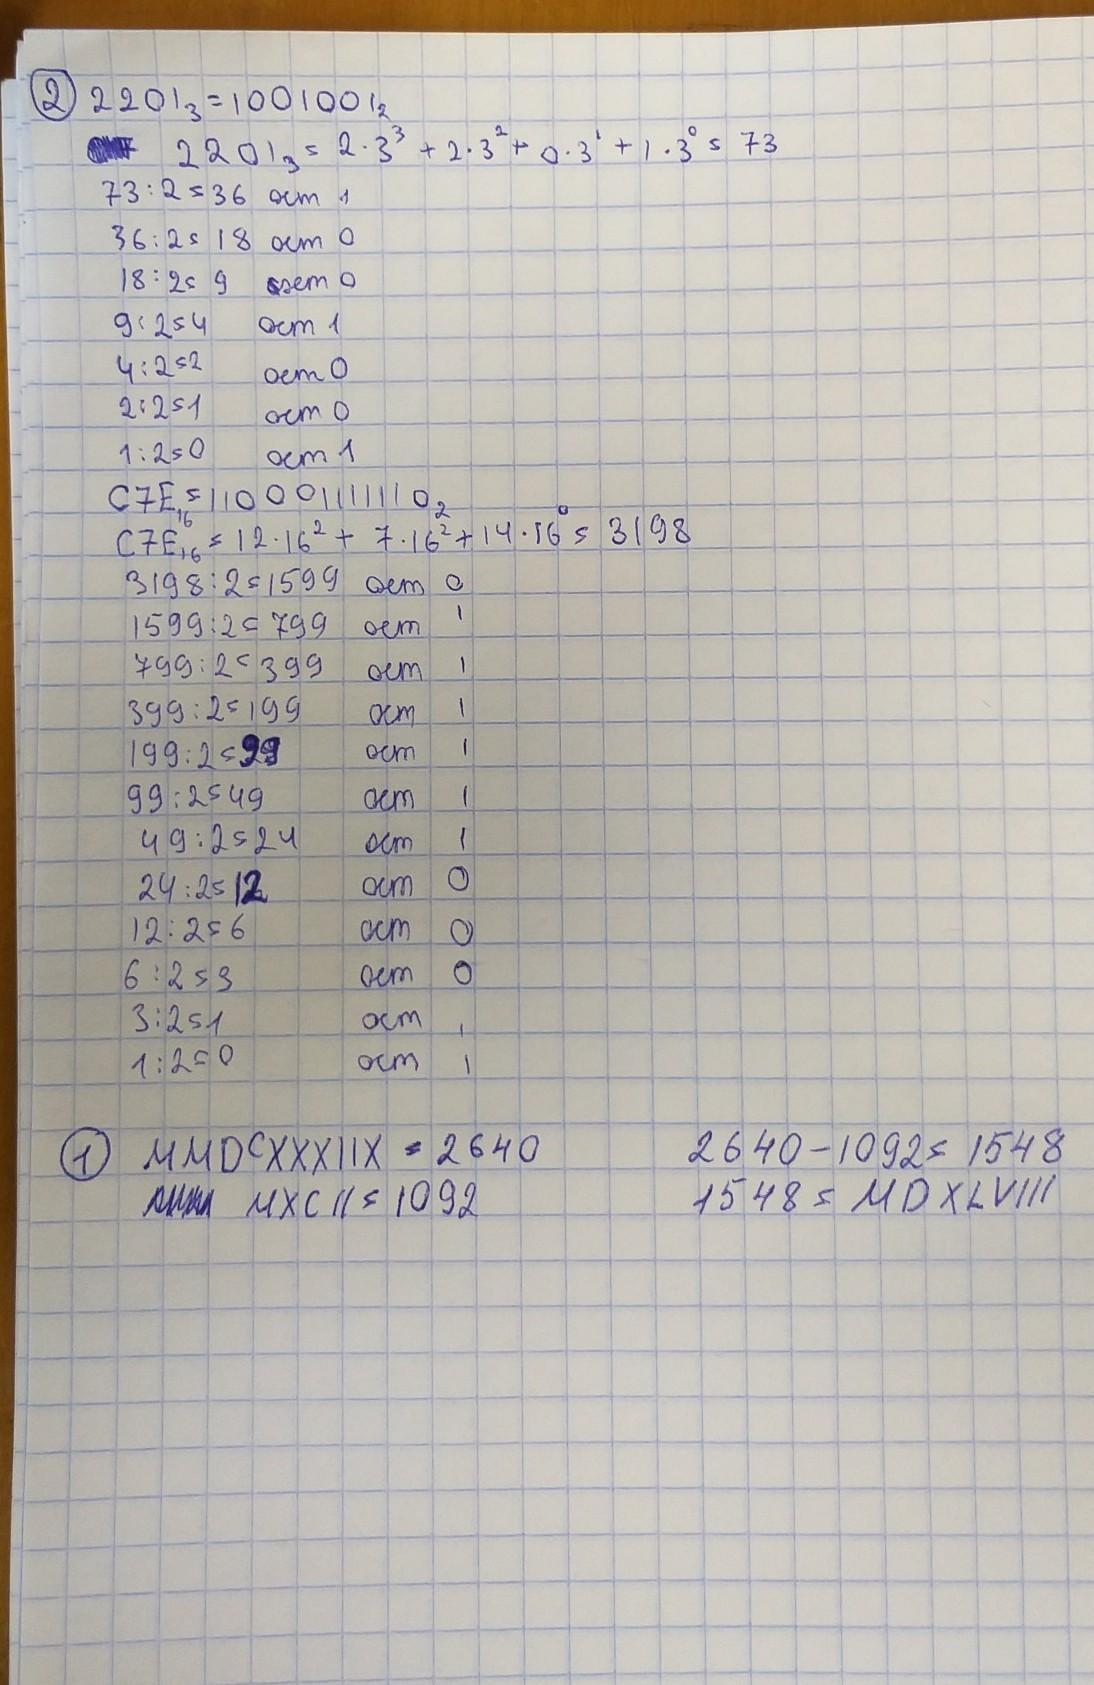 ② 2201₃ = 1001001₂
2201₃ = 2·3³ + 2·3² + 0·3¹ + 1·3⁰ = 73
73:2=36 ост 1
36:2=18 ост 0
18:2=9 ост 0
9:2=4 ост 1
4:2=2 ост 0
2:2=1 ост 0
1:2=0 ост 1
C7E₁₆ = 110001111110₂
C7E₁₆ = 12·16² + 7·16² + 14·16⁰ = 3198
3198:2=1599 ост 0
1599:2=799 ост 1
799:2=399 ост 1
399:2=199 ост 1
199:2=99 ост 1
99:2=49 ост 1
49:2=24 ост 1
24:2=12 ост 0
12:2=6 ост 0
6:2=3 ост 0
3:2=1 ост 1
1:2=0 ост 1
① MMDCXXXIIX = 2640 2640-1092=1548
MXCII = 1092 1548 = MDXLVIII